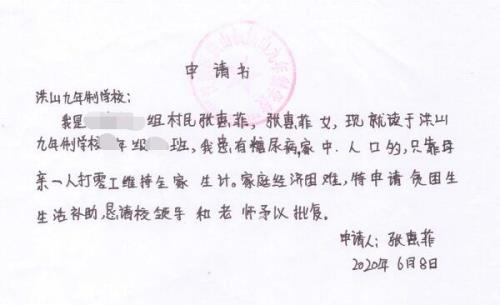 申请书
洪山九年制学校：
我是 组村民张惠菲，张惠菲女，现就读于洪山
九年制学校 年级 班，我患有糖尿病，家中.人口的，只靠母
亲一人打零工维持全家生计。家庭经济困难，特申请贫困生
生活补助，恳请校领导和老师予以批复。
申请人：张惠菲
2020年6月8日